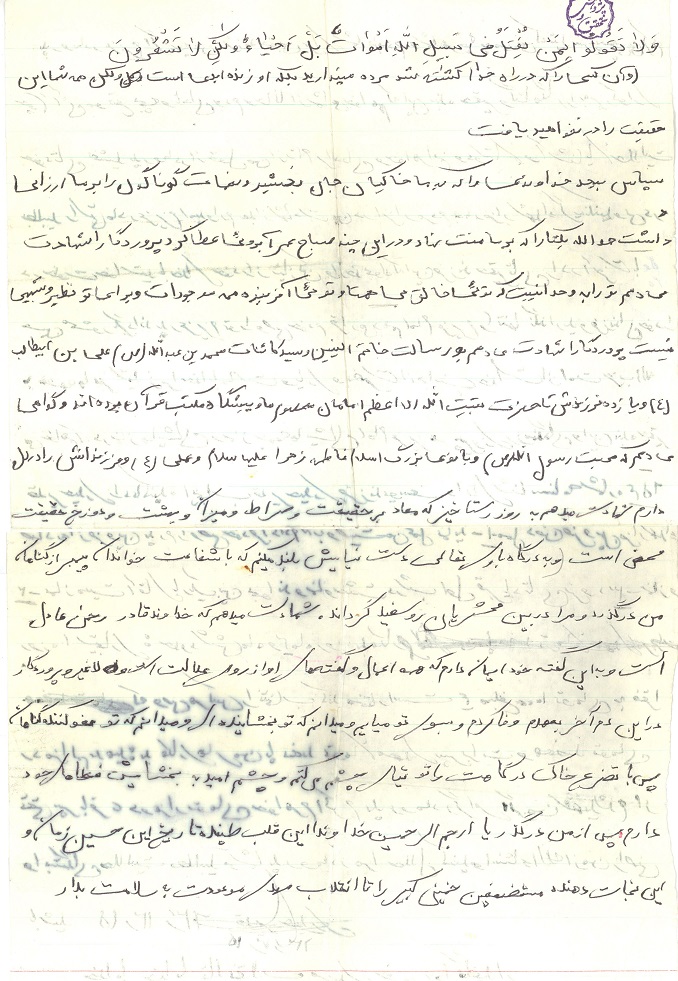 وَلا تَقُولُو لِمَنْ يُقْتَلُ فی سَبیلِ اللهِ اَمْواتٌ بَلْ اَحْیاءٌ وَلکِنْ لا تَشْعُرُونَ
(وآن کسا را که در راه خدا کشته شد مرده مپندارید بلکه او زنده ابدی است ولکن همه شما این
حقیقت را در نخواهید یافت
سپاس بیحد خداوند را که به ما خاکیان جان بخشید و نعمات گوناگون را بر ما ارزانی
داشت حمد الله یکتا را که بر ما منت نهاد و در این چند صباح عمر آبرو عطا کرد پروردگارا شهادت
می دهم تو را به وحدانیت که تو خالق همتا و تو آفریننده همه موجودات و برای تو نظیر و شبیهی
نیست پروردگارا شهادت می دهم بر رسالت خاتم النبیین و سید کائنات محمد بن عبدالله (ص) علی بن ابیطالب
(ع) و یازده فرزندش تا حضرت بقیت الله الاعظم امامان معصوم ما و پیشگاه مکتب قرآن بوده اند و گواهی
می دهم که محبت رسول الله (ص) و بانوی بزرگ اسلام فاطمه زهرا علیها سلام و علی (ع) و فرزندانش را در دل
دارم شهادت میدهم به روز رستاخیز که معاد بر حقیقت و صراط و میزان و بهشت و دوزخ حقیقت
محض است و به درگاه باری تعالی دست نیایش بلند میکنم که با شفاعت خوانان پس از گناهان
من درگذرد و مرا در بین محشریان روسفید گرداند. شهادت میدهم که خداوند قادر رحمن عادل
است و به این گفته خود ایمان دارم که همه اعمال و گفته های او از روی عدالت است و لا غیر و پروردگار
در این دم آخر به عهدم وفا کردم و بسوی تو میایم و میدانم که تو بخشاینده ای و میدانم که تو عفو کننده گناهان
پس با تضرع خاک درگاهت را تو تیای چشم می کنم و چشم امید به بخشایش خطاهای خود
دارم پس از من درگذر یا ارحم الرحمین خداوندا این قلب طپنده تاریخ این حسین زمان و
این نجات دهنده مستضعفین خمینی کبیر را تا انقلاب مهدی موعودت به سلامت بدار